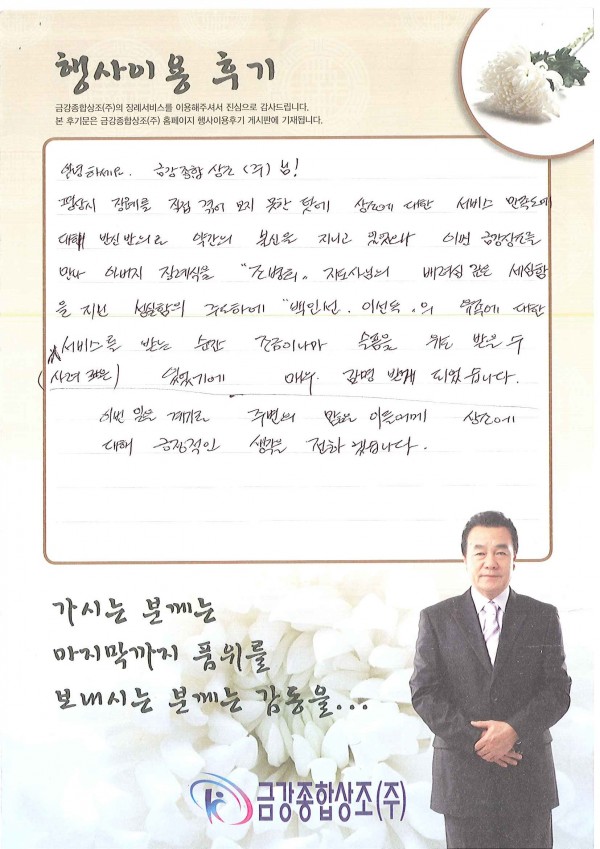 행사이용 후기
금강종합상조(주)의 장례서비스를 이용해주셔서 진심으로 감사드립니다.
본 후기문은 금강종합상조(주) 홈페이지 행사이용후기 게시판에 기재됩니다.
안녕하세요. 금강종합상조(주)님!
평상시 장례를 직접 겪어 보지 못한 탓에 상조에 대한 서비스 만족도에
대해 반신반의로 약간의 불신을 지니고 있었으나 이번 금강상조를
만나 아버지 장례식을 "조병희" 지도사님의 배려심 깊은 세심함
을 지닌 성실함의 주도하에 "백인선, 이선옥"의 유족에 대한
서비스를 받는 순간 조금이나마 슬픔을 위로 받을 수
(사려 깊은) 있었기에 매우 감명 받게 되었습니다.
이번 일을 계기로 주변의 많은 이들에게 상조에
대해 긍정적인 생각을 전하겠습니다.
가시는 분께는
마지막까지 품위를
보내시는 분께는 감동을...
금강종합상조(주)